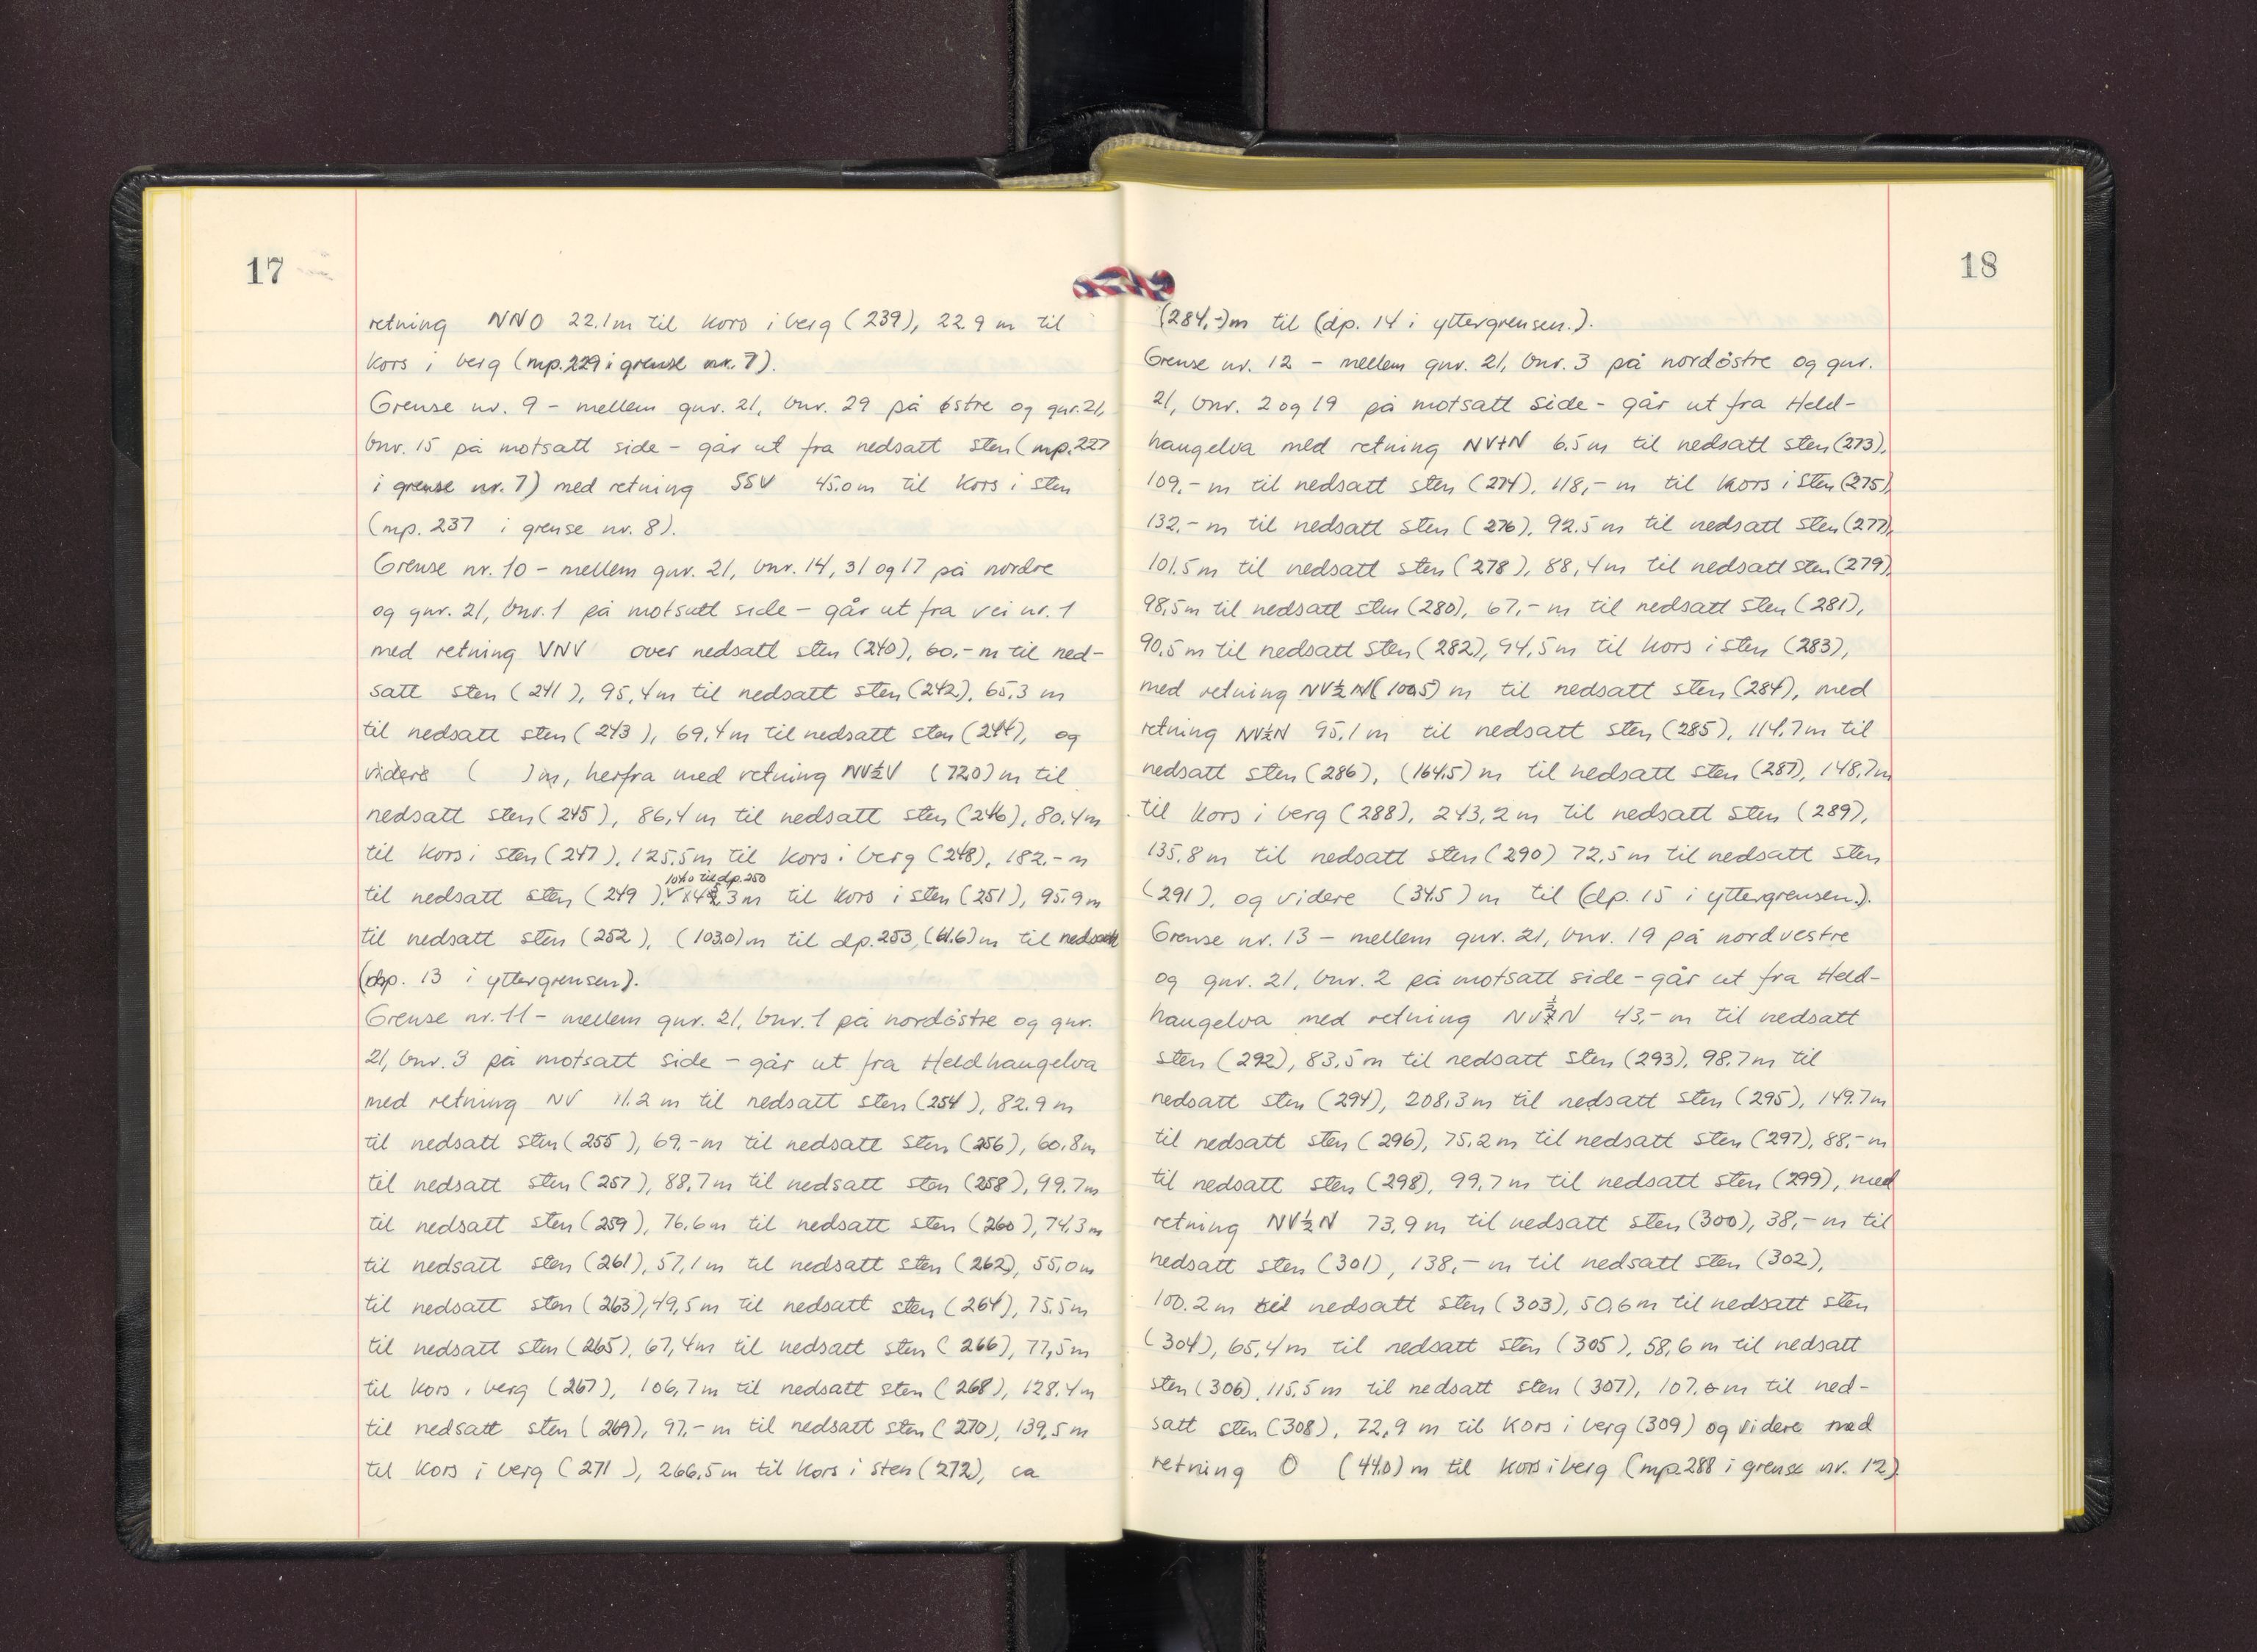 17
retning NNO 22.1m til kors i berg (239), 22.9 m til
kors i berg (mp.229 i grense nr. 7).
Grense nr. 9 - mellem gnr. 21, bnr. 29 på østre og gnr. 21,
bnr. 15 på motsatt side - går ut fra nedsatt sten (mp.227
i grense nr. 7) med retning SSV 45.0m til kors i sten
(mp. 237 i grense nr. 8).
Grense nr. 10 - mellem gnr. 21, bnr. 14, 31 og 17 på nordre
og gnr. 21, bnr. 1 på motsatt side - går ut fra vei nr. 1
med retning VNV over nedsatt sten (240), 60,- m til ned-
satt sten (241), 95,4m til nedsatt sten (242), 65.3 m
til nedsatt sten (243), 69,4m til nedsatt sten (244), og
videre ( )m, herfra med retning NV½V (72.0)m til
nedsatt sten (245), 86,4m til nedsatt sten (246), 80,4m
til kors i sten (247), 125,5m til kors i berg (248), 182,- m
104.0 til dp. 250
til nedsatt sten (249), 3m til kors i sten (251), 95,9m
til nedsatt sten (252), (103.0)m til dp. 253, (61.6)m til nedsatt
(dp. 13 i yttergrensen).
Grense nr. 11 - mellem gnr. 21, bnr. 1 på nordøstre og gnr.
21, bnr. 3 på motsatt side - går ut fra Heldhaugelva
med retning NV 11.2 m til nedsatt sten (254), 82.9 m
til nedsatt sten (255), 69,- m til nedsatt sten (256), 60,8m
til nedsatt sten (257), 88,7m til nedsatt sten (258), 99.7m
til nedsatt sten (259), 76,6m til nedsatt sten (260), 74,3m
til nedsatt sten (261), 57,1m til nedsatt sten (262), 55,0m
til nedsatt sten (263), 49,5m til nedsatt sten (264), 75,5m
til nedsatt sten (265), 67,4m til nedsatt sten (266), 77,5m
til kors i berg (267), 106,7m til nedsatt sten (268), 128,4m
til nedsatt sten (269), 97,- m til nedsatt sten (270), 139,5m
til kors i berg (271), 266,5m til kors i sten (272), ca
18
(284,-)m til (dp. 14 i yttergrensen.).
Grense nr. 12 - mellem gnr. 21, bnr. 3 på nordøstre og gnr.
21, bnr. 2 og 19 på motsatt side - går ut fra Held-
haugelva med retning NVtN 6.5m til nedsatt sten (273),
109,- m til nedsatt sten (274), 118,- m til kors i sten (275),
132,- m til nedsatt sten (276), 92.5 m til nedsatt sten (277),
101.5m til nedsatt sten (278), 88,4m til nedsatt sten (279),
98,5m til nedsatt sten (280), 67,- m til nedsatt sten (281),
90,5m til nedsatt sten (282), 94,5m til kors i sten (283),
med retning NV½N (100.5) m til nedsatt sten (284), med
retning NV½N 95,1 m til nedsatt sten (285), 114,7m til
nedsatt sten (286), (164.5) m til nedsatt sten (287), 148,7m
til kors i berg (288), 243,2m til nedsatt sten (289),
135,8m til nedsatt sten (290) 72,5m til nedsatt sten
(291), og videre (34.5)m til (dp. 15 i yttergrensen.).
Grense nr. 13 - mellem gnr. 21, bnr. 19 på nordvestre
og gnr. 21, bnr. 2 på motsatt side - går ut fra Held-
haugelva med retning NV½N 43,- m til nedsatt
sten (292), 83,5m til nedsatt sten (293), 98.7m til
nedsatt sten (294), 208,3m til nedsatt sten (295), 149.7m
til nedsatt sten (296), 75,2m til nedsatt sten (297), 88,- m
til nedsatt sten (298), 99,7m til nedsatt sten (299), med
retning NV½N 73,9m til nedsatt sten (300), 38,- m til
nedsatt sten (301), 138,- m til nedsatt sten (302),
100.2m til nedsatt sten (303), 50,6m til nedsatt sten
(304), 65,4m til nedsatt sten (305), 58,6 m til nedsatt
sten (306), 115,5m til nedsatt sten (307), 107.0m til ned-
satt sten (308), 72,9 m til kors i berg (309) og videre med
retning O (44.0)m til kors i berg (mp.288 i grense nr. 12)